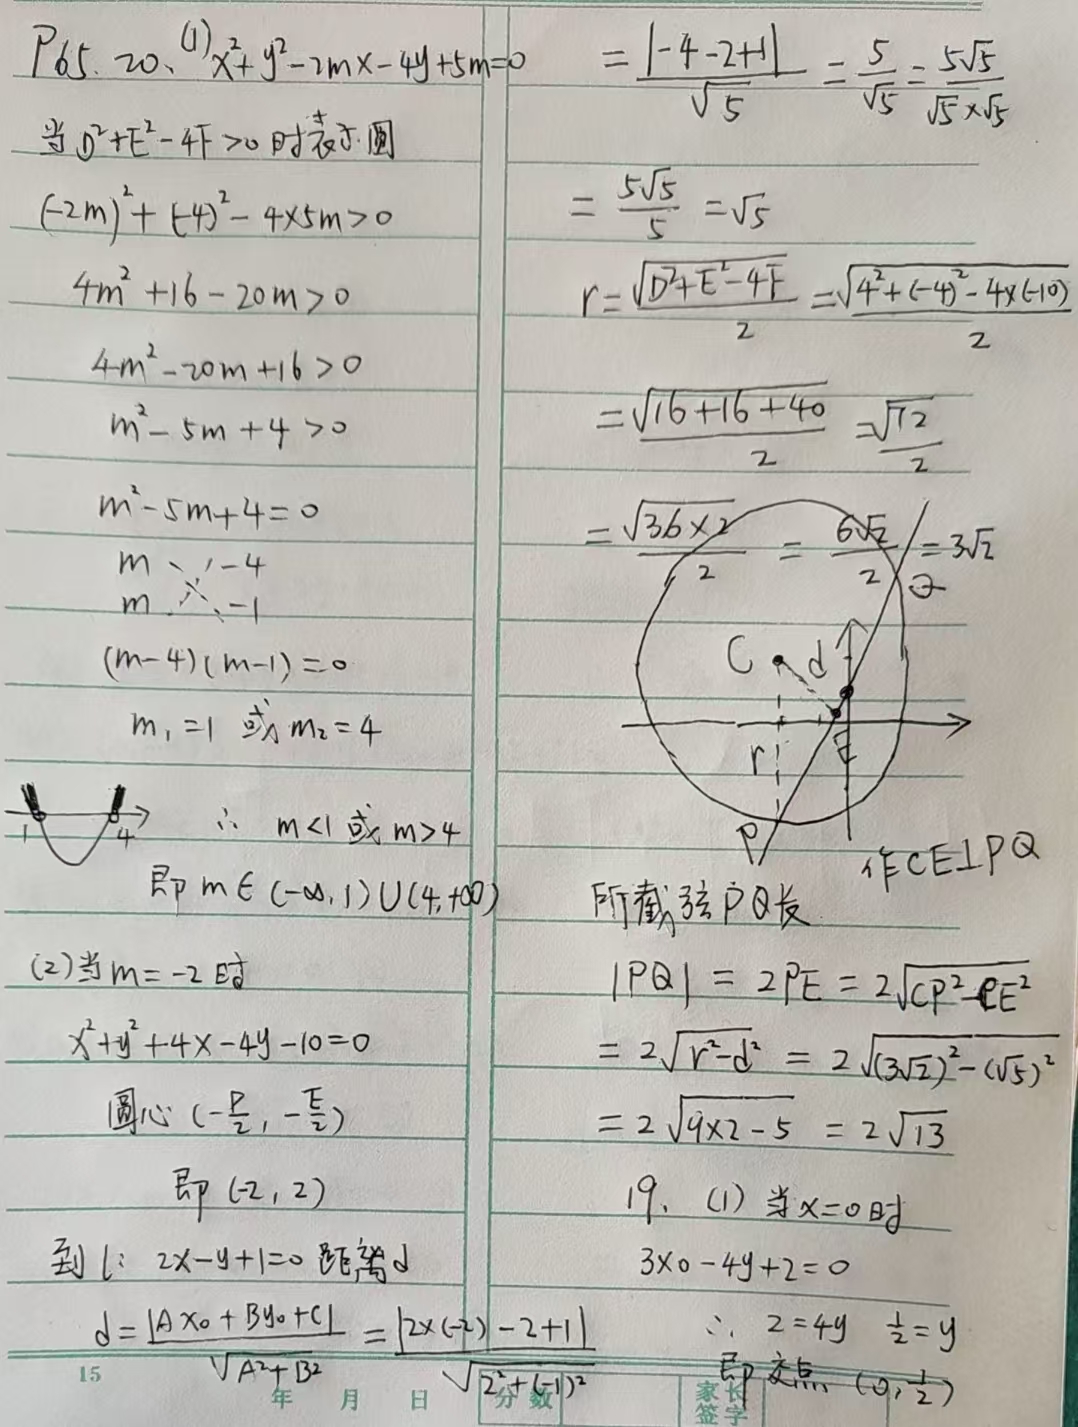 P65. 20、(1) x²+y²-2mx-4y+5m=0
当D²+E²-4F>0时表示圆
(-2m)²+(-4)²-4×5m>0
4m²+16-20m>0
4m²-20m+16>0
m²-5m+4>0
m²-5m+4=0
m -4
m -1
(m-4)(m-1)=0
m₁=1 或 m₂=4
1 4
∴ m<1 或 m>4
即 m∈(-∞,1)∪(4,+∞)
(2)当m=-2时
x²+y²+4x-4y-10=0
圆心(-D/2, -E/2)
即(-2,2)
到l: 2x-y+1=0 距离d
d=|Ax₀+By₀+C|/√A²+B² = |2×(-2)-2+1|/√2²+(-1)²
= |-4-2+1|/√5 = 5/√5 = 5√5/√5×√5
= 5√5/5 = √5
r = √D²+E²-4F/2 = √4²+(-4)²-4×(-10)/2
= √16+16+40/2 = √72/2
= √36×2/2 = 6√2/2 = 3√2
Q
C d
r E
P
作CE⊥PQ
所截弦PQ长
|PQ| = 2PE = 2√CP²-CE²
= 2√r²-d² = 2√(3√2)²-(√5)²
= 2√9×2-5 = 2√13
19、(1)当x=0时
3×0-4y+2=0
∴ 2=4y 1/2=y
即交点(0,1/2)
15
年 月 日 分数 家长签字